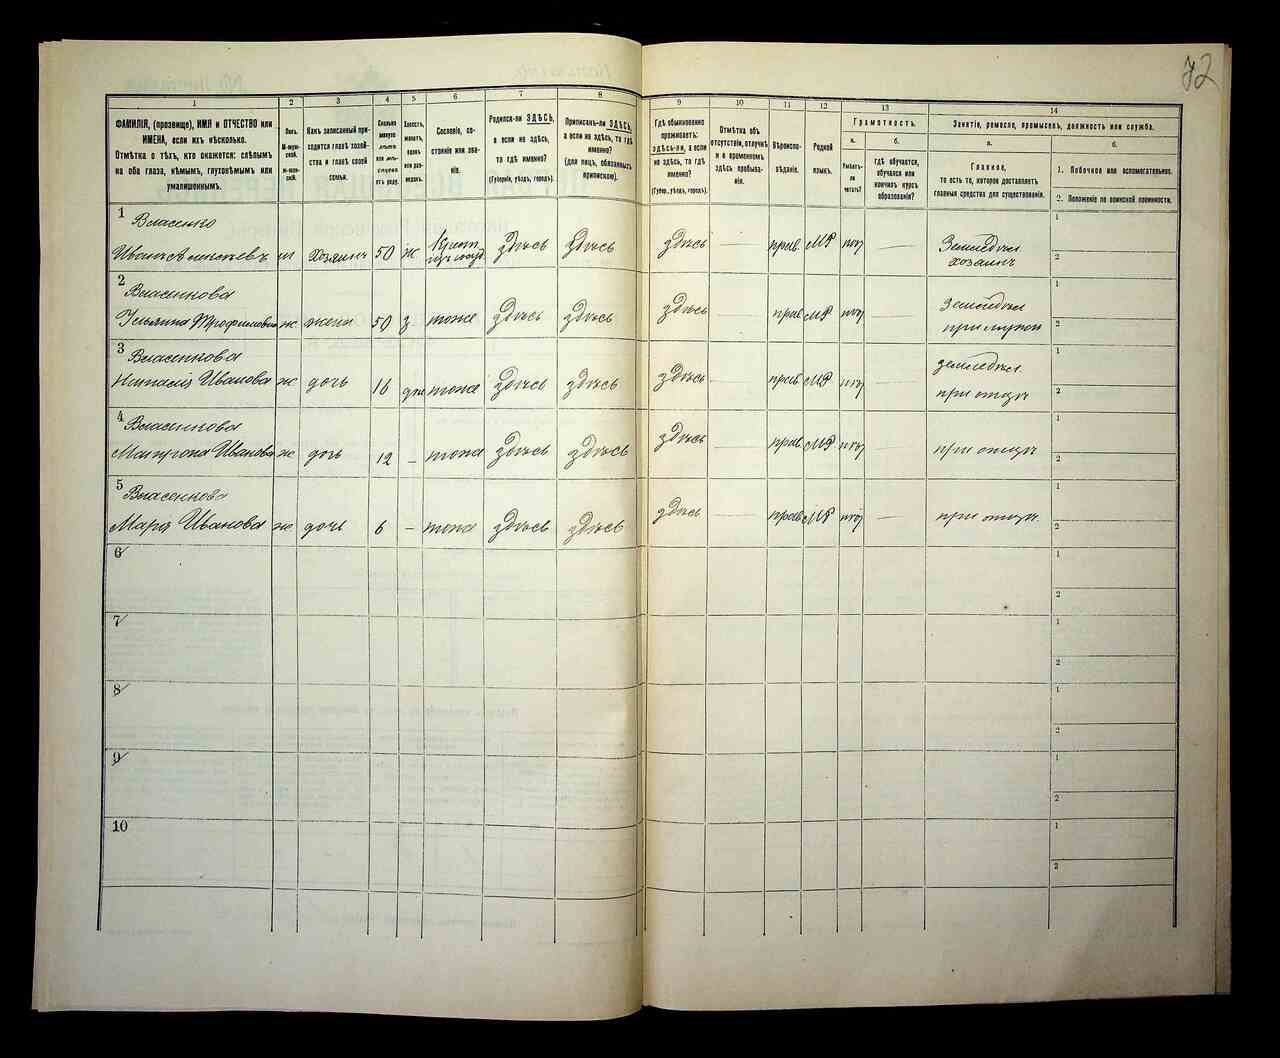 72
1
2
3
4
5
6
7
8
9
10
11
12
13
14
ФАМИЛІЯ, (прозвище), ИМЯ и ОТЧЕСТВО или
ИМЕНА, если ихъ нѣсколько.
Отмѣтка о тѣхъ, кто окажется: слѣпымъ
на оба глаза, нѣмымъ, глухонѣмымъ или
умалишеннымъ.
Полъ.
М-муж-
ской.
Ж-жен-
скій.
Какъ записанный при-
ходится главѣ хозяй-
ства и главѣ своей
семьи.
Сколько
минуло
лѣтъ
или мѣ-
сяцевъ
отъ роду.
Холостъ,
женатъ,
вдовъ
или раз-
веденъ.
Сословіе, со-
стояніе или зва-
ніе.
Родился-ли ЗДѢСЬ,
а если не здѣсь,
то гдѣ именно?
(Губернія, уѣздъ, городъ).
Приписанъ-ли ЗДѢСЬ,
а если не здѣсь, то гдѣ
именно?
(для лицъ, обязанныхъ
припискою).
Гдѣ обыкновенно
проживаетъ:
здѣсь-ли, а если
не здѣсь, то гдѣ
именно?
(Губер., уѣздъ, городъ).
Отмѣтка объ
отсутствіи, отлучкѣ
и о временномъ
здѣсь пребыва-
ніи.
Вѣроиспо-
вѣданіе.
Родной
языкъ.
Грамотность.
а.
б.
Умѣетъ-
ли
читать?
Гдѣ обучается,
обучался или
кончилъ курсъ
образованія?
Занятіе, ремесло, промыселъ, должность или служба.
а.
б.
Главное,
то есть то, которое доставляетъ
главныя средства для существованія.
1. Побочное или вспомогательное.
2. Положеніе по воинской повинности.
1 Власенко
Иванъ Алексѣевъ м Хозяинъ 50 ж Крест. здѣсь здѣсь здѣсь — прав. МР нѣт — Земледѣл. хозяинъ 1 2
2 Власенкова
Ульяна Трофимова ж жена 50 з тоже здѣсь здѣсь здѣсь — прав МР нѣт — Земледѣл. при мужѣ 1 2
3 Власенкова
Наталія Иванова ж дочь 16 дѣв тоже здѣсь здѣсь здѣсь — прав МР нѣт — земледѣл. при отцѣ 1 2
4 Власенкова
Матрона Иванова ж дочь 12 – тоже здѣсь здѣсь здѣсь — прав. МР нѣт — при отцѣ 1 2
5 Власенкова
Марія Иванова ж дочь 6 – тоже здѣсь здѣсь здѣсь — прав МР нѣт — при отцѣ. 1 2
6 1 2
7 1 2
8 1 2
9 1 2
10 1 2